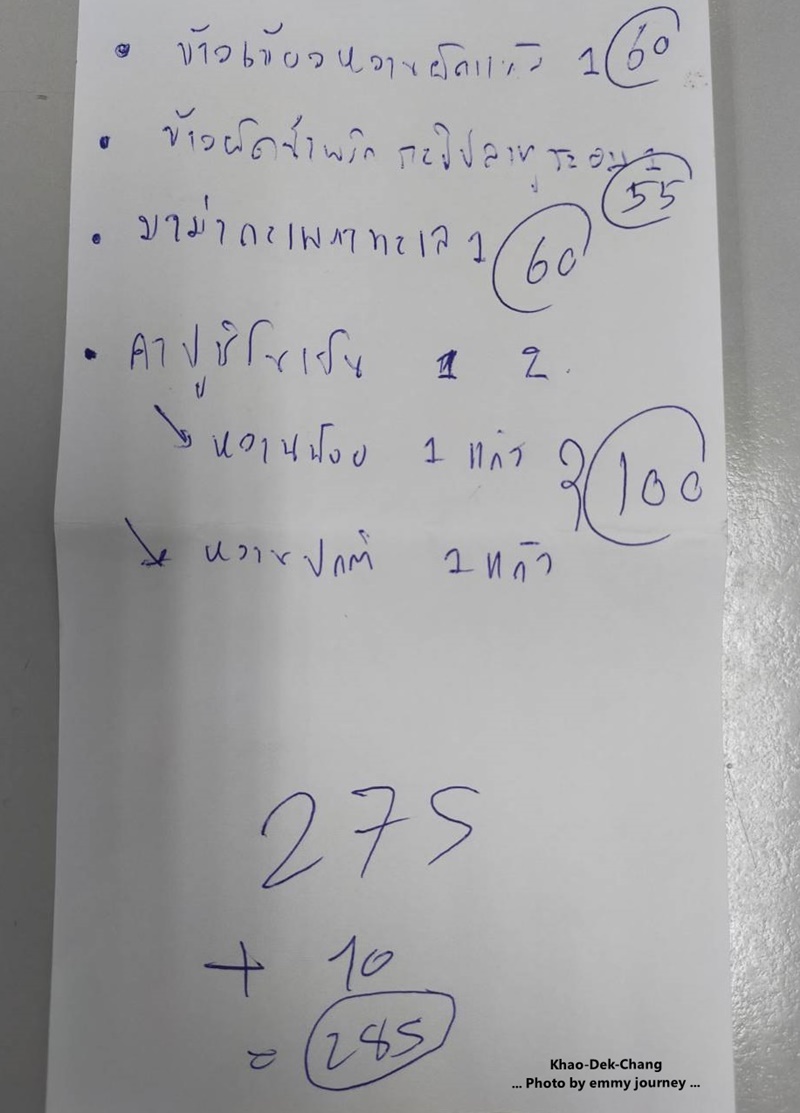 • ข้าวเขียวหวานผัดแห้ง 1 60
• ข้าวผัดน้ำพริกกะปิปลาทูระอบ 1 55
• มาม่ากะเพราทะเล 1 60
• คาปูชิโน่เย็น 1 2
หวานน้อย 1 แก้ว
100
หวานปกติ 1 แก้ว
275
+ 10
= 285
Khao-Dek-Chang
... Photo by emmy journey ...